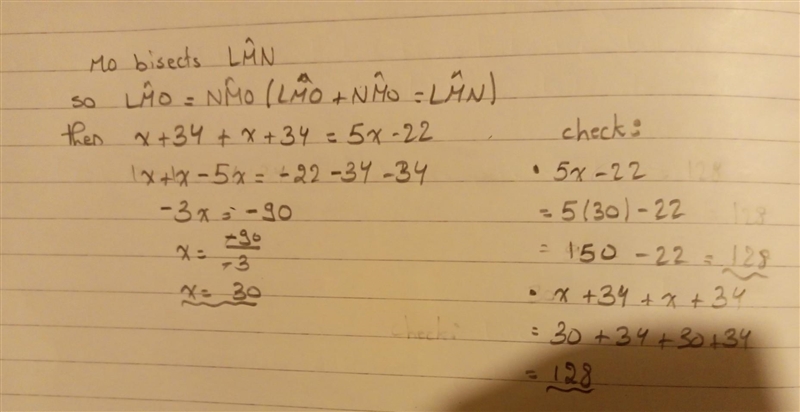 MO bisects LM̂N
so LM̂O = NM̂O (LM̂O + NM̂O = LM̂N)
then x+34 + x+34 = 5x-22
1x+1x-5x = -22-34-34
-3x = -90
x = -90/-3
x = 30
check:
• 5x-22
= 5(30)-22
= 150 -22 = 128
• x+34+x+34
= 30+34+30+34
= 128